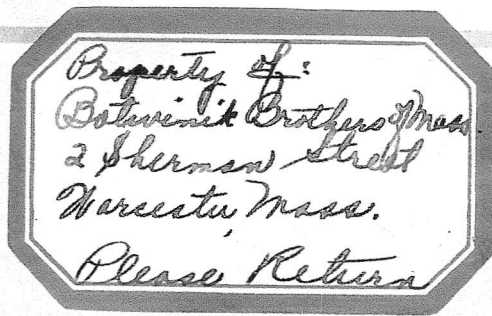 Property of:
Botwinik Brothers of Mass
2 Sherman Street
Worcester, Mass.
Please Return